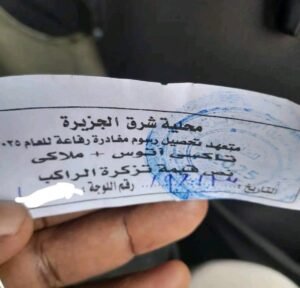 محلية شرق الجزيرة
متعهد تحصيل رسوم مغادرة رفاعة للعام ٢٠٢٥
تاكسي اتوس + ملاكي
قيمة تزكرة الراكب
التاريخ : رقم اللوحة :